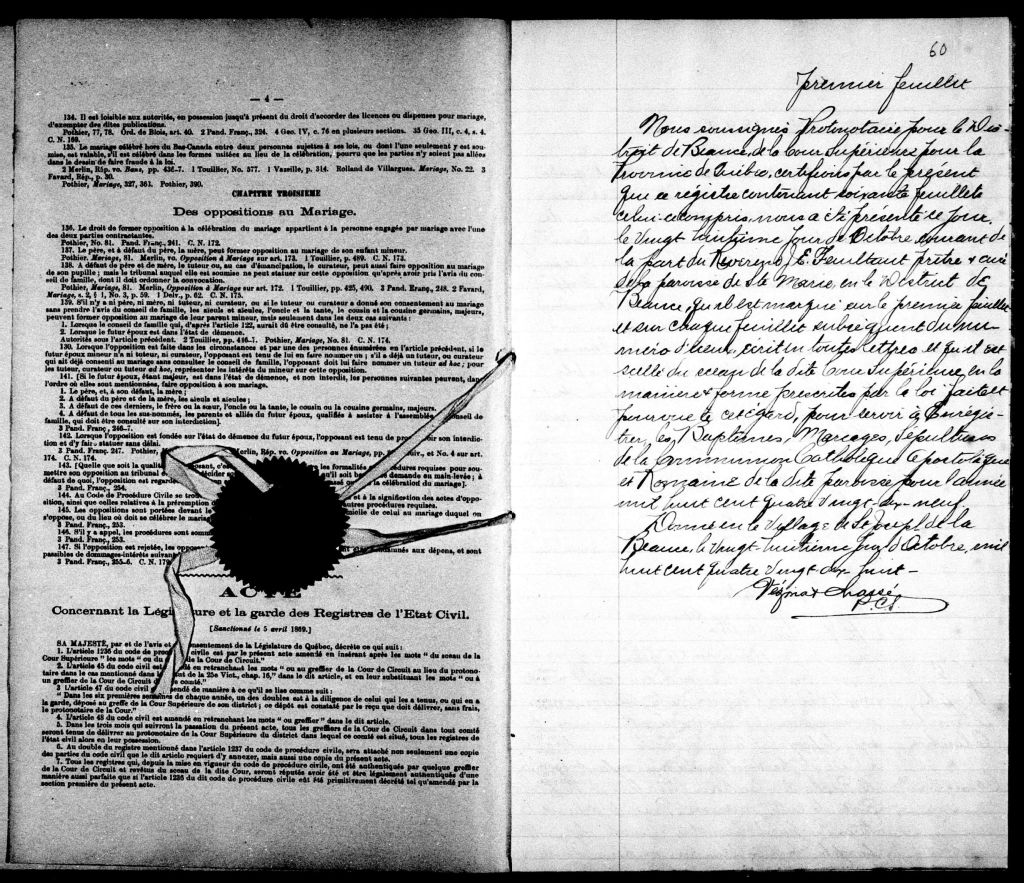 — 4 —
134. Il est loisible aux autorités, en possession jusqu'à présent du droit d'accorder des licences ou dispenses pour mariage,
d'exempter des dites publications.
Pothier, 77, 78. Ord. de Blois, art. 40. 2 Pand. Franç., 324. 4 Geo. IV, c. 76 en plusieurs sections. 35 Geo. III, c. 4, s. 4.
C. N. 169.
135. Le mariage célébré hors du Bas-Canada entre deux personnes sujettes à ses lois, ou dont l'une seulement y est sou-
mise, est valable, s'il est célébré dans les formes usitées au lieu de la célébration, pourvu que les parties n'y soient pas allées
dans le dessin de faire fraude à la loi.
2 Merlin, Rép. vo. Bans, pp. 436-7. 1 Touillier, No. 577. 1 Vazeille, p. 314. Rolland de Villargues, Mariage, No. 22. 3
Favard, Rép., p. 30.
Pothier, Mariage, 327, 361. Pothier, 390.
CHAPITRE TROISIEME
Des oppositions au Mariage.
136. Le droit de former opposition à la célébration du mariage appartient à la personne engagée par mariage avec l'une
des deux parties contractantes.
Pothier, No. 81. Pand. Franç., 241. C. N. 172.
137. Le père, et à défaut du père, la mère, peut former opposition au mariage de son enfant mineur.
Pothier, Mariage, 81. Merlin, vo. Opposition à Mariage sur art. 173. 1 Touillier, p. 489. C. N. 173.
138. A défaut de père et de mère, le tuteur ou, au cas d'émancipation, le curateur, peut aussi faire opposition au mariage
de son pupille ; mais le tribunal auquel elle est soumise ne peut statuer sur cette opposition qu'après avoir pris l'avis du con-
seil de famille, dont il doit ordonner la convocation.
Pothier, Mariage, 81. Merlin, Opposition à Mariage sur art. 172. 1 Touillier, pp. 425, 490. 3 Pand. Franç., 248. 2 Favard,
Mariage, s. 2, § 1, No. 3, p. 59. 1 Delv., p. 62. C. N. 175.
139. S'il n'y a ni père, ni mère, ni tuteur, ni curateur, ou si le tuteur ou curateur a donné son consentement au mariage
sans prendre l'avis du conseil de famille, les aieuls et aieules, l'oncle et la tante, le cousin et la cousine germains, majeurs,
peuvent former opposition au mariage de leur parent mineur, mais seulement dans les deux cas suivants :
1. Lorsque le conseil de famille qui, d'après l'article 122, aurait dû être consulté, ne l'a pas été ;
2. Lorsque le futur époux est dans l'état de démence.
Autorités sous l'article précédent. 2 Touillier, pp. 416-7. Pothier, Mariage, No. 81. C. N. 174.
130. Lorsque l'opposition est faite dans les circonstances et par une des personnes énumérées en l'article précédent, si le
futur époux mineur n'a ni tuteur, ni curateur, l'opposant est tenu de lui en faire nommer un ; s'il a déjà un tuteur, ou curateur
qui ait déjà consenti au mariage sans consulter le conseil de famille, l'opposant doit lui faire nommer un tuteur ad hoc ; pour
les tuteur, curateur ou tuteur ad hoc, représenter les intérêts du mineur sur cette opposition.
141. [Si le futur époux, étant majeur, est dans l'état de démence, et non interdit, les personnes suivantes peuvent, dans
l'ordre où elles sont mentionnées, faire opposition à son mariage.
1. Le père, et, à son défaut, la mère ;
2. A défaut du père et de la mère, les aieuls et aieules ;
3. A défaut de ces derniers, le frère ou la sœur, l'oncle ou la tante, le cousin ou la cousine germains, majeurs.
4. A défaut de tous les sus-nommés, les parents et alliés du futur époux, qualifiés à assister à l'assemblée conseil de
famille, qui doit être consulté sur son interdiction].
3 Pand. Franç., 246-7.
142. Lorsque l'opposition est fondée sur l'état de démence du futur époux, l'opposant est tenu de son interdic-
tion et d'y faire statuer sans délai.
3 Pand. Franç. 247. Pothier, Merlin, Rép. vo. Opposition au Mariage, pp. et No. 4 sur art.
174. C. N. 174.
143. [Quelle que soit la qualité opposant, les formalités requises pour sou-
mettre son opposition au tribunal main-levée ; à
défaut de quoi, l'opposition est regardée célébration du mariage].
3 Pand. Franç., 254.
144. Au Code de Procédure Civile se et à la signification des actes d'oppo-
sition, ainsi que celles relatives à la autres procédures requises.
145. Les oppositions sont portées devant domicile de celui au mariage duquel on
s'oppose, ou du lieu où doit se célébrer le mariage
3 Pand. Franç., 253.
146. S'il y a appel, les procédures sont
3 Pand. Franç., 253.
147. Si l'opposition est rejetée, les aux dépens, et sont
passibles de dommages-intérêts
3 Pand. Franç., 255-6. C. N. 179
ACTE
Concernant la et la garde des Registres de l'Etat Civil.
[Sanctionné le 5 avril 1869.]
SA MAJESTÉ, par et de l'avis et consentement de la Législature de Québec, décrète ce qui suit :
1. L'article 1236 du code de civile est par le présent acte amendé en insérant après les mots " du sceau de la
Cour Supérieure " les mots " ou du de la Cour de Circuit."
2. L'article 45 du code civil est en retranchant les mots " ou au greffier de la Cour de Circuit au lieu du protono-
taire dans le cas mentionné dans de la 25e Vict., chap. 16," dans le dit article, et en leur substituant les mots " ou à
un greffier de la Cour de Circuit comté."
3 L'article 47 du code civil amendé de manière à ce qu'il se lise comme suit :
" Dans les six premières semaines de chaque année, un des doubles est à la diligence de celui qui les a tenus, ou qui en a
la garde, déposé au greffe de la Cour Supérieure de son district ; ce dépôt est constaté par le reçu que doit délivrer, sans frais,
le protonotaire de la Cour."
4. L'article 48 du code civil est amendé en retranchant les mots " ou greffier " dans le dit article.
5. Dans les trois mois qui suivront la passation du présent acte, tous les greffiers de la Cour de Circuit dans tout comté
seront tenus de délivrer au protonotaire de la Cour Supérieure du district dans lequel ce comté est situé, tous les registres de
l'état civil alors en leur possession.
6. Au double du registre mentionné dans l'article 1237 du code de procédure civile, sera attaché non seulement une copie
des parties du code civil que le dit article requiert d'y annexer, mais aussi une copie du présent acte.
7. Tous les registres qui, depuis la mise en vigueur du code de procédure civile, ont été authentiqués par quelque greffier
de la Cour de Circuit et revêtus du sceau de la dite Cour, seront réputés avoir été et être légalement authentiqués d'une
manière aussi parfaite que si l'article 1236 du dit code de procédure civile eût été primitivement décrété tel qu'amendé par la
section première du présent acte.
60
premier feuillet
Nous soussignés Protonotaire pour le Dis-
trict de Beauce, de la Cour Supérieure pour la
Province de Québec, certifions par le présent
que ce registre contenant soixante feuillets
celui-ci compris, nous a été présenté ce jour,
le vingt huitième jour de Octobre courant de
la part du Révérend J. E. Feuiltault prêtre & curé
de la paroisse de Ste Marie en le District de
Beauce, qu'il est marqué sur le premier feuillet
et sur chaque feuillet subséquent du nu-
méro d'iceux, écrit en toutes lettres et qu'il est
scellé du sceau de la dite Cour Supérieure, en la
manière & forme prescrites par la loi faite et
pourvue à cet égard, pour servir à Enregis-
trer, les Baptêmes, Mariages, Sépultures
de la Communion Catholique Apostolique
et Romaine de la dite paroisse pour l'année
mil huit cent quatre vingt-dix-neuf.
Donné en le Village de St Joseph de la
Beauce, le vingt huitième jour d'Octobre, mil
huit cent quatre vingt dix huit –
P.C.S.